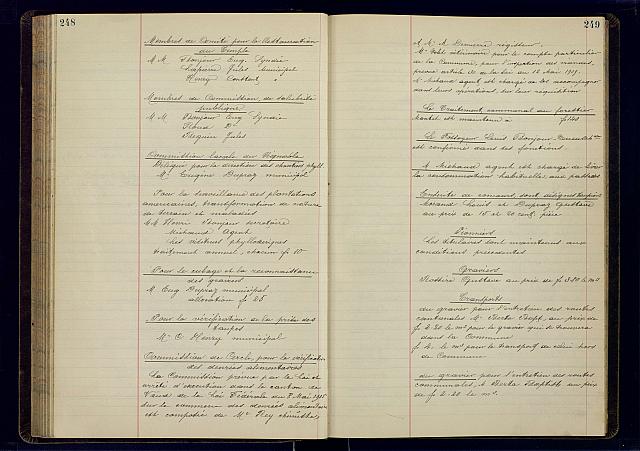 248
Membres du Comité pour la Restauration
du Temple
M M Bonjour Eug. Syndic
Jules Municipal
Henry Constant
Membres de Commission de salubrité
publique
M M Bonjour Eug Syndic
Jules
Commission locale du Vignoble
Délégué pour la direction des chantiers phyll.
Mr Eugène Dupraz municipal
Pour la surveillance des plantations
américaines, transformation de nature
de terrain et maladies
MM Henri Bonjour secrétaire
Michaud Agent
Les visiteurs phylloxériques
traitement annuel, chacun fr 10
Pour le cubage et la reconnaissance
des graviers
M Eug Dupraz municipal
allocation fr 25
Pour la vérification de la prise des
taupes
Mr C Henry municipal
Commission de Cercle, pour la vérification
des denrées alimentaires
La Commission prévue par la loi et
arrêté d'exécution dans le canton de
Vaud de la Loi Fédérale du 8 Mai 1905
sur le commerce des denrées alimentaires
est composée de Mr Rey chimiste,
249
et M. M. régisseur.
Mr vétérinaire pour le compte particulier
de la Commune, pour l'inspection des viandes,
prévue article de la loi du 12 Mai 1909.
Mr Michaud agent est chargé de les accompagner
dans leurs opérations, sur leur réquisition
Le Traitement communal au forestier
est maintenu à fr 140
Le Fossoyeur Louis Bonjour
est confirmé dans ses fonctions.
M Michaud agent est chargé de
la recommandation habituelle aux
sont désignés
Morand Louis et Dupraz Gustave
au prix de 15 et 20 cent. pièce
Pionniers
Les titulaires sont maintenus aux
conditions précédentes
Graviers
Gustave au prix de fr 3.50 le m3
Transports
du gravier pour l'entretien des routes
cantonales Mr Berta Bapt. au prix de
fr 2.20 le m3 pour le gravier qui se trouvera
dans la Commune
fr 4. le m3 pour le transport de celui hors
de Commune
du gravier pour l'entretien des routes
communales, M Berta Baptiste au prix
de fr 2.20 le m3.